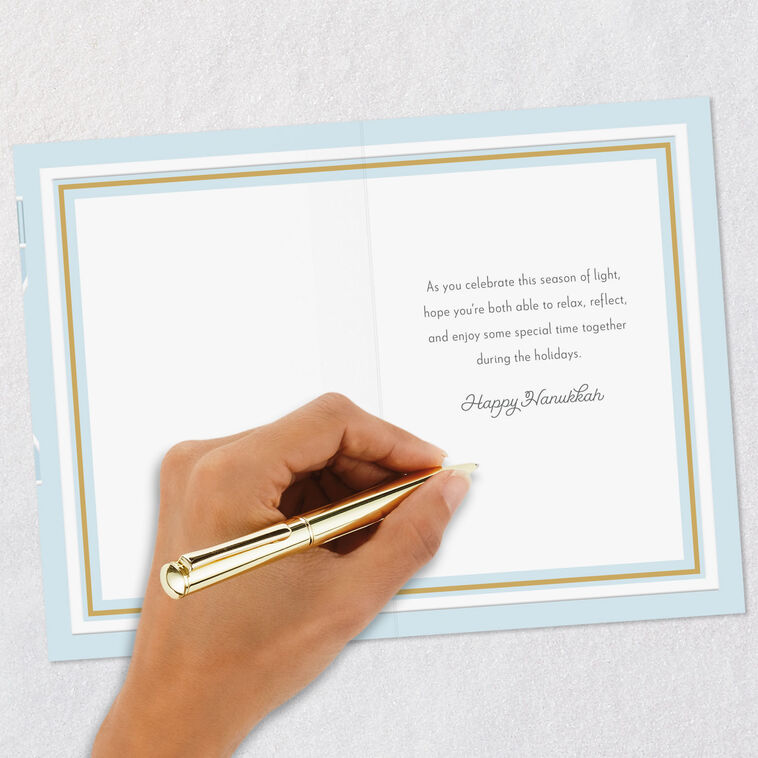 As you celebrate this season of light,
hope you're both able to relax, reflect,
and enjoy some special time together
during the holidays.
Happy Hanukkah